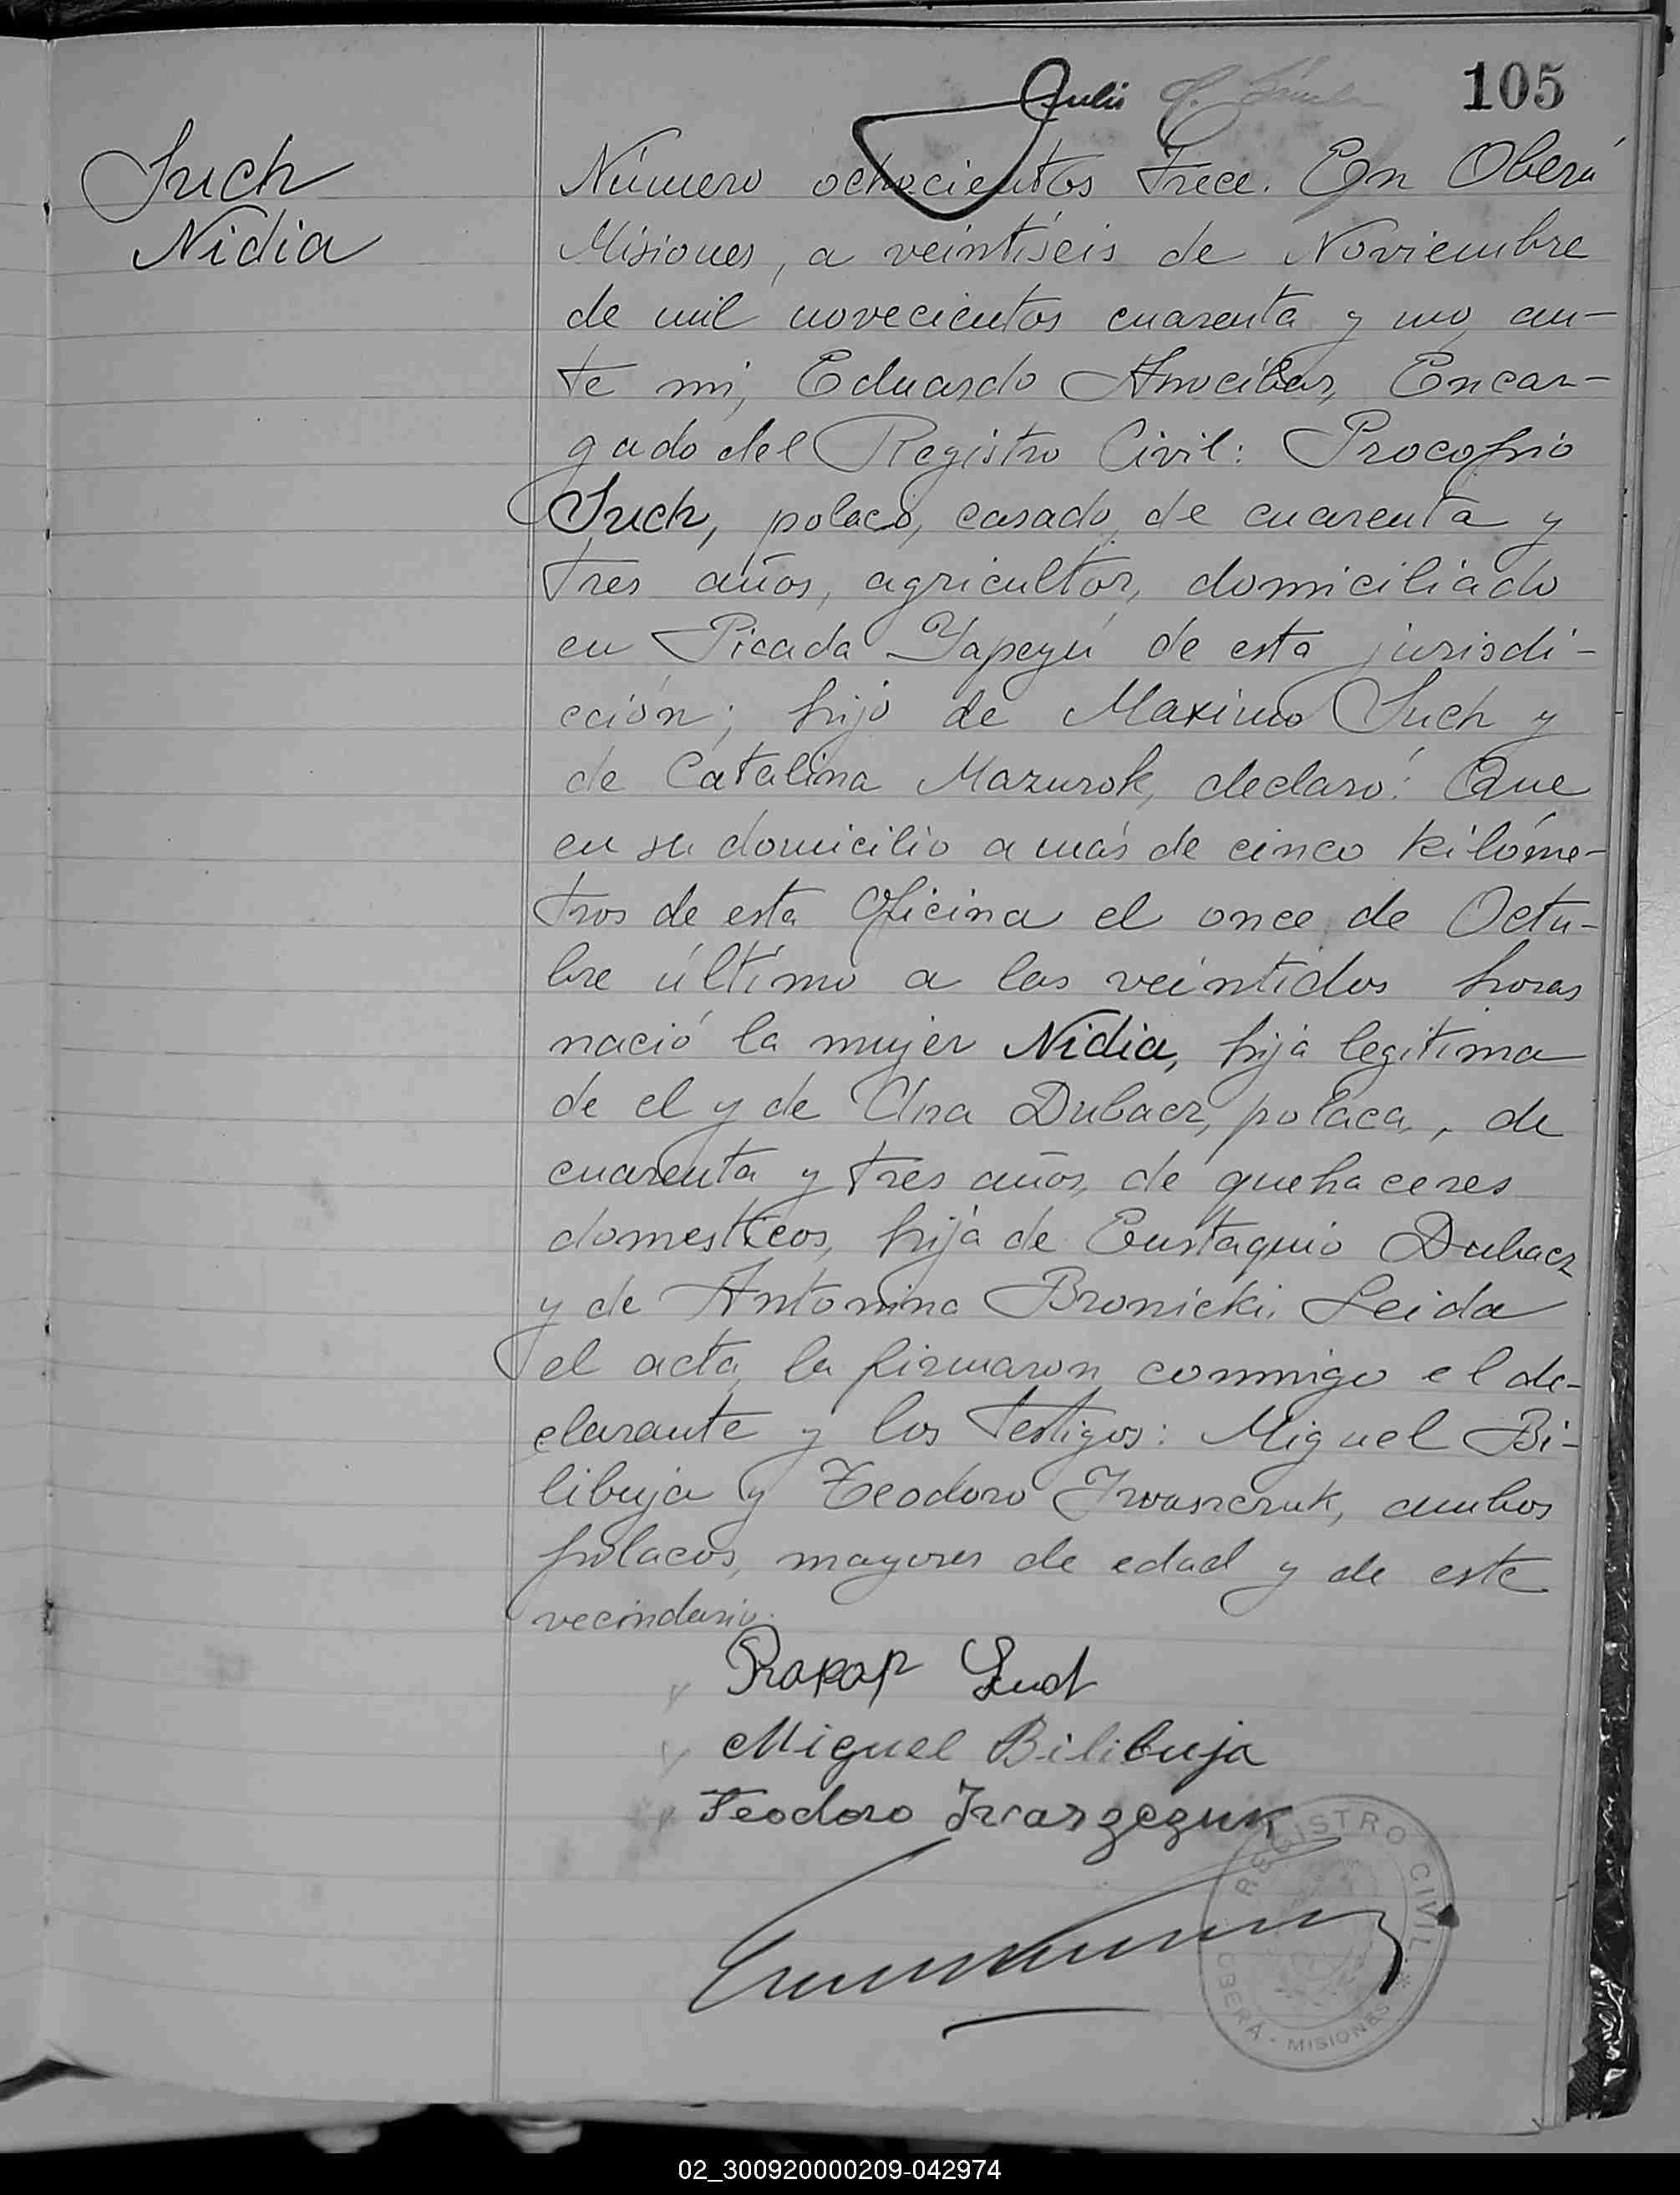 105
Julio
Such
Nidia
Número ochocientos trece. En Oberá
Misiones, a veintiseis de Noviembre
de mil novecientos cuarenta y uno, an-
te mi, Eduardo Amocibar, Encar-
gado del Registro Civil: Procopio
Such, polaco, casado, de cuarenta y
tres años, agricultor, domiciliado
en Picada Yapeyú de esta jurisdi-
cción; hijo de Maximo Such y
de Catalina Mazurok, declaró: Que
en su domicilio a más de cinco kilóme-
tros de esta Oficina el once de Octu-
bre último a las veintidos horas
nació la mujer Nidia, hija legitima
de el y de Ana Dubacz, polaca, de
cuarenta y tres años, de quehaceres
domesticos, hija de Eustaquio Dubacz
y de Antonina Bronicki. Leida
el acta, la firmaron conmigo el de-
clarante y los testigos: Miguel Bi-
libuja y Teodoro Iwaszczuk, ambos
polacos, mayores de edad y de este
vecindario.
Prokop
Miguel Bilibuja
Teodoro Iwaszczuk
REGISTRO CIVIL
OBERÁ - MISIONES
02_300920000209-042974